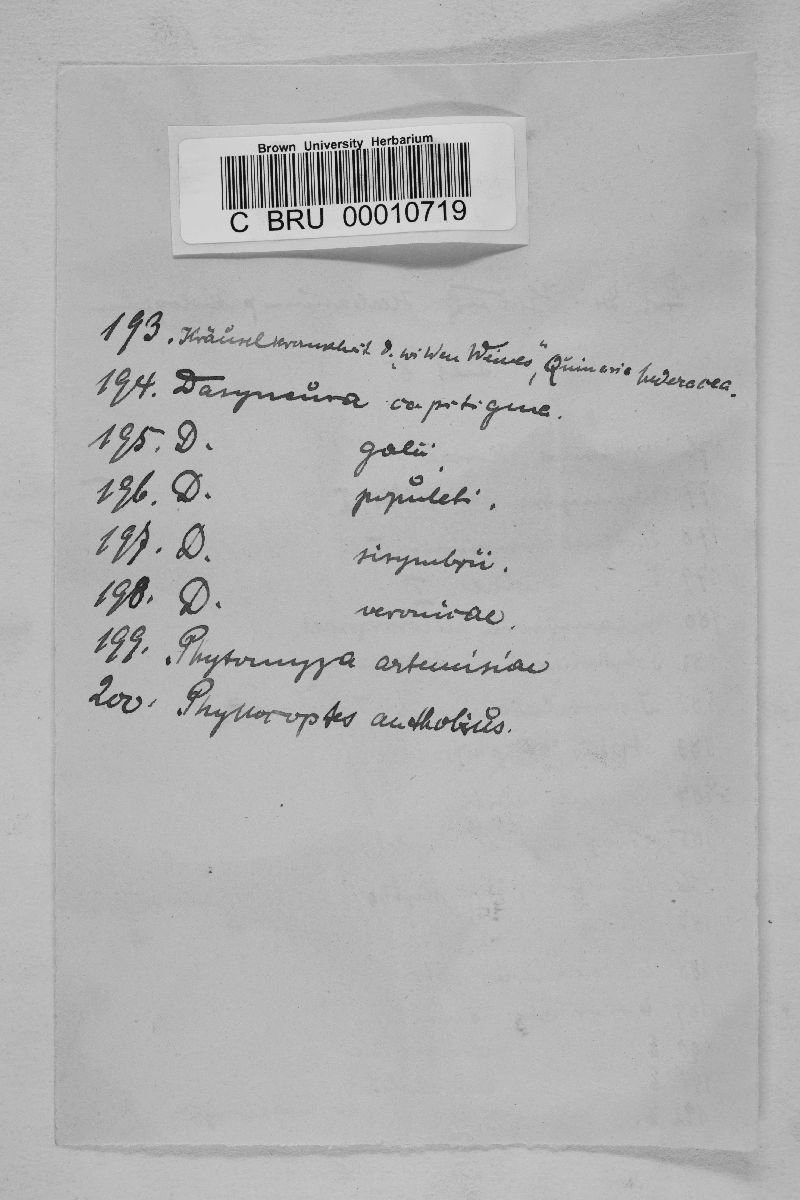 Brown University Herbarium
C BRU 00010719
193. Kräuselkrankheit d. „wilden Weines“, Quinaria hederacea.
194. Dasyneura capitigena.
195. D. galii.
196. D. populeti.
197. D. sisymbrii.
198. D. veronicae.
199. Phytomyza artemisiae
200. Phyllocoptes anthobius.